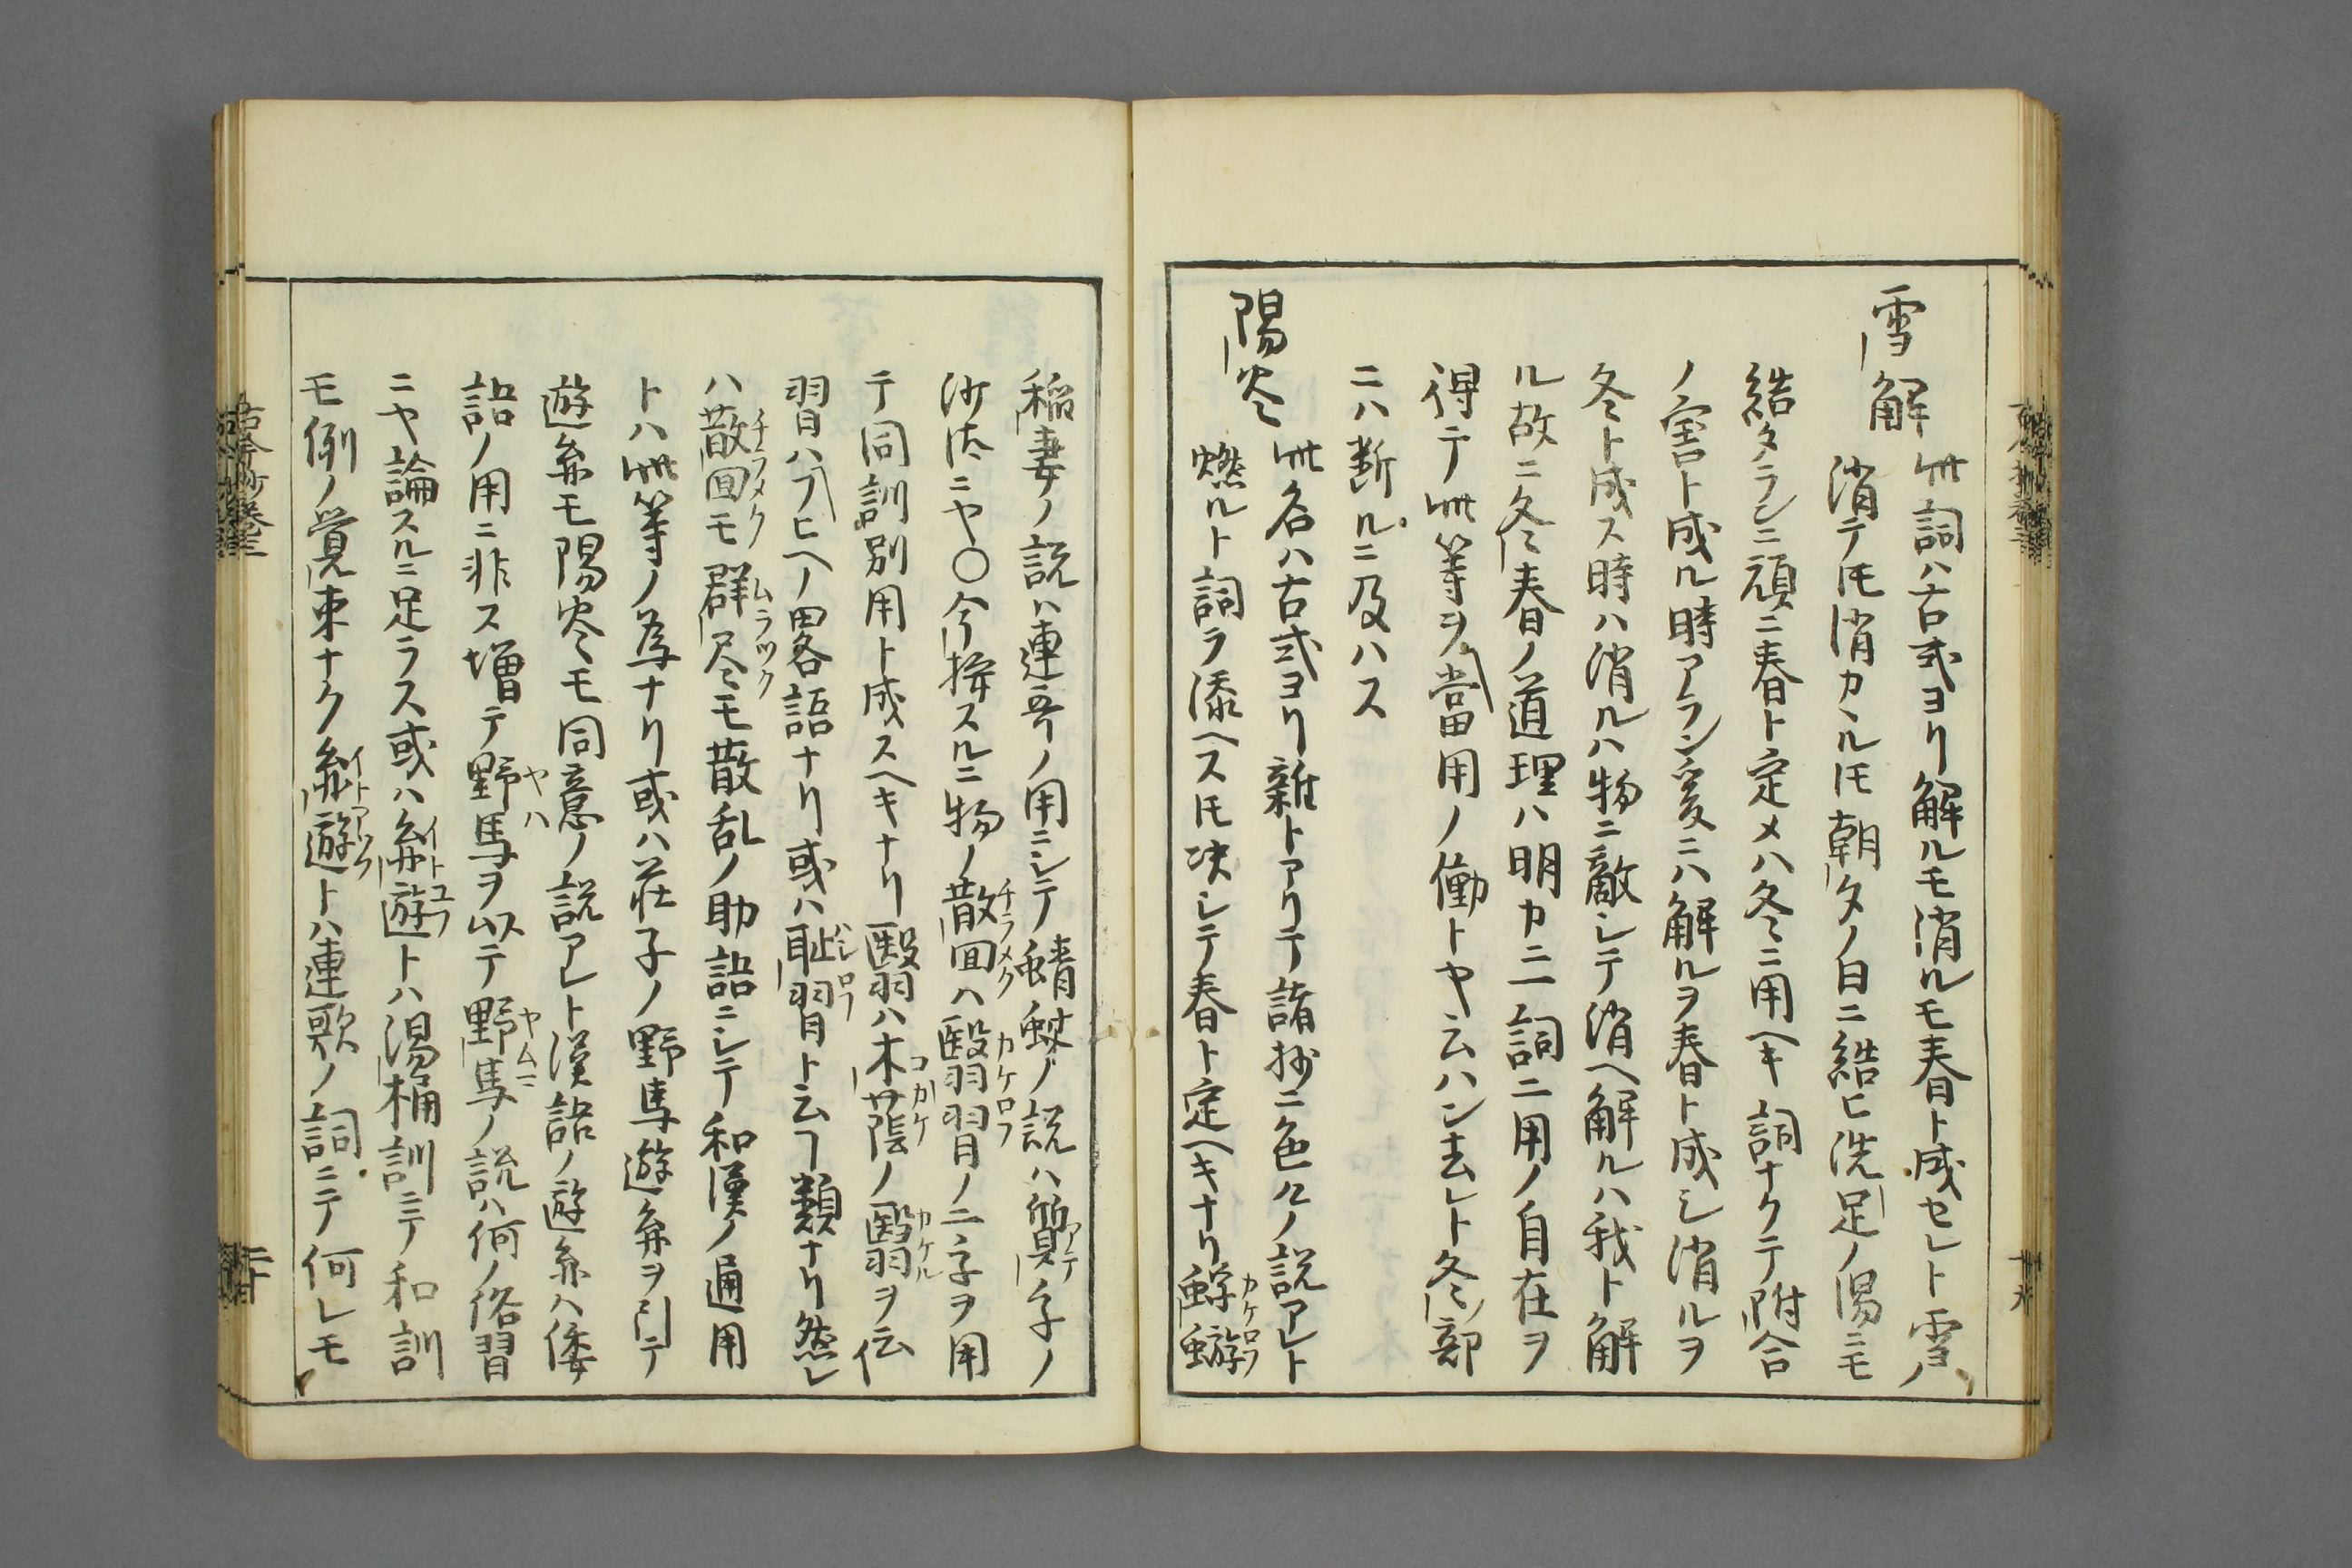 雪解
此詞ハ古式ヨリ解ルモ消ルモ春ト成セレト雪ノ
消テ𪜈消カヽル𪜈朝夕ノ白ニ結ヒ洗足ノ湯ニモ
結タランニ頑ニ春ト定メハ冬ニ用ヘキ詞ナクテ附合
ノ害ト成ル時アラン爰ニハ解ルヲ春ト成シ消ルヲ
冬ト成ス時ハ消ルハ物ニ敵シテ消ヘ解ルハ我ト解
ル故ニ冬春ノ道理ハ明カニ一詞二用ノ自在ヲ
得テ此等ヲ當用ノ働トヤ云ハン去レト冬ノ部
ニハ断ルニ及ハス
陽炎
此名ハ古式ヨリ雜トアリテ諸抄ニ色々ノ説アレト
燃ルト詞ヲ添ヘス𪜈决シテ春ト定ヘキナリ蜉蝣カケロフ
稲妻ノ説ハ連哥ノ用ニシテ蜻蛉ノ説ハ質アテ字ノ
沙汰ニヤ〇今按スルニ物ノ散回チラメクハ翳習カケロフノ二字ヲ用
テ同訓別用ト成スヘキナリ翳ハ木蔭コカケノ翳カケルヲ伝
習ハフヒヘノ畧語ナリ或ハ耻習ハシロフト云フ類ナリ然レ
ハ散回チラメクモ群尽ムラツクモ散乱ノ助語ニシテ和漢ノ通用
トハ此等ノ為ナリ或ハ莊子ノ野馬遊糸ヲ引テ
遊糸モ陽炎モ同意ノ説アレト漢語ノ遊糸ハ倭
語ノ用ニ非ス増テ野馬ヤハヲ以テ野馬ヤムマノ説ハ何ノ俗習
ニヤ論スルニ足ラス或ハ糸遊イトユフトハ湯桶訓ニテ和訓
モ例ノ覚束ナク糸遊イトアソフトハ連歌ノ詞ニテ何レモ
古今抄巻三
二十